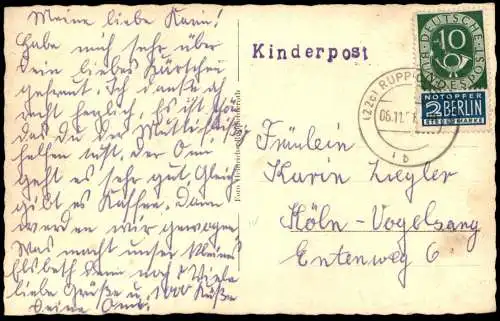 Meine liebe Karin!
Habe mich sehr über
dein liebes Kärtchen
gefreut. Ich danke
recht herzlich. Es ist
das du der Mutti
helfen tust. Der Oma
geht es sehr gut. Gleich
gibt es Kaffee, dann
werden wir gewogen
Was macht unser kleines
Elsbeth denn noch? Viele
liebe Grüße u. 1000 Küße
Deine Oma.
Kinderpost
DEUTSCHE BUNDESPOST
10
NOTOPFER
2 BERLIN
STEUERMARKE
(22c) RUPP
06.11.
b
Fräulein
Karin Ziegler
Köln-Vogelsang
Entenweg 6